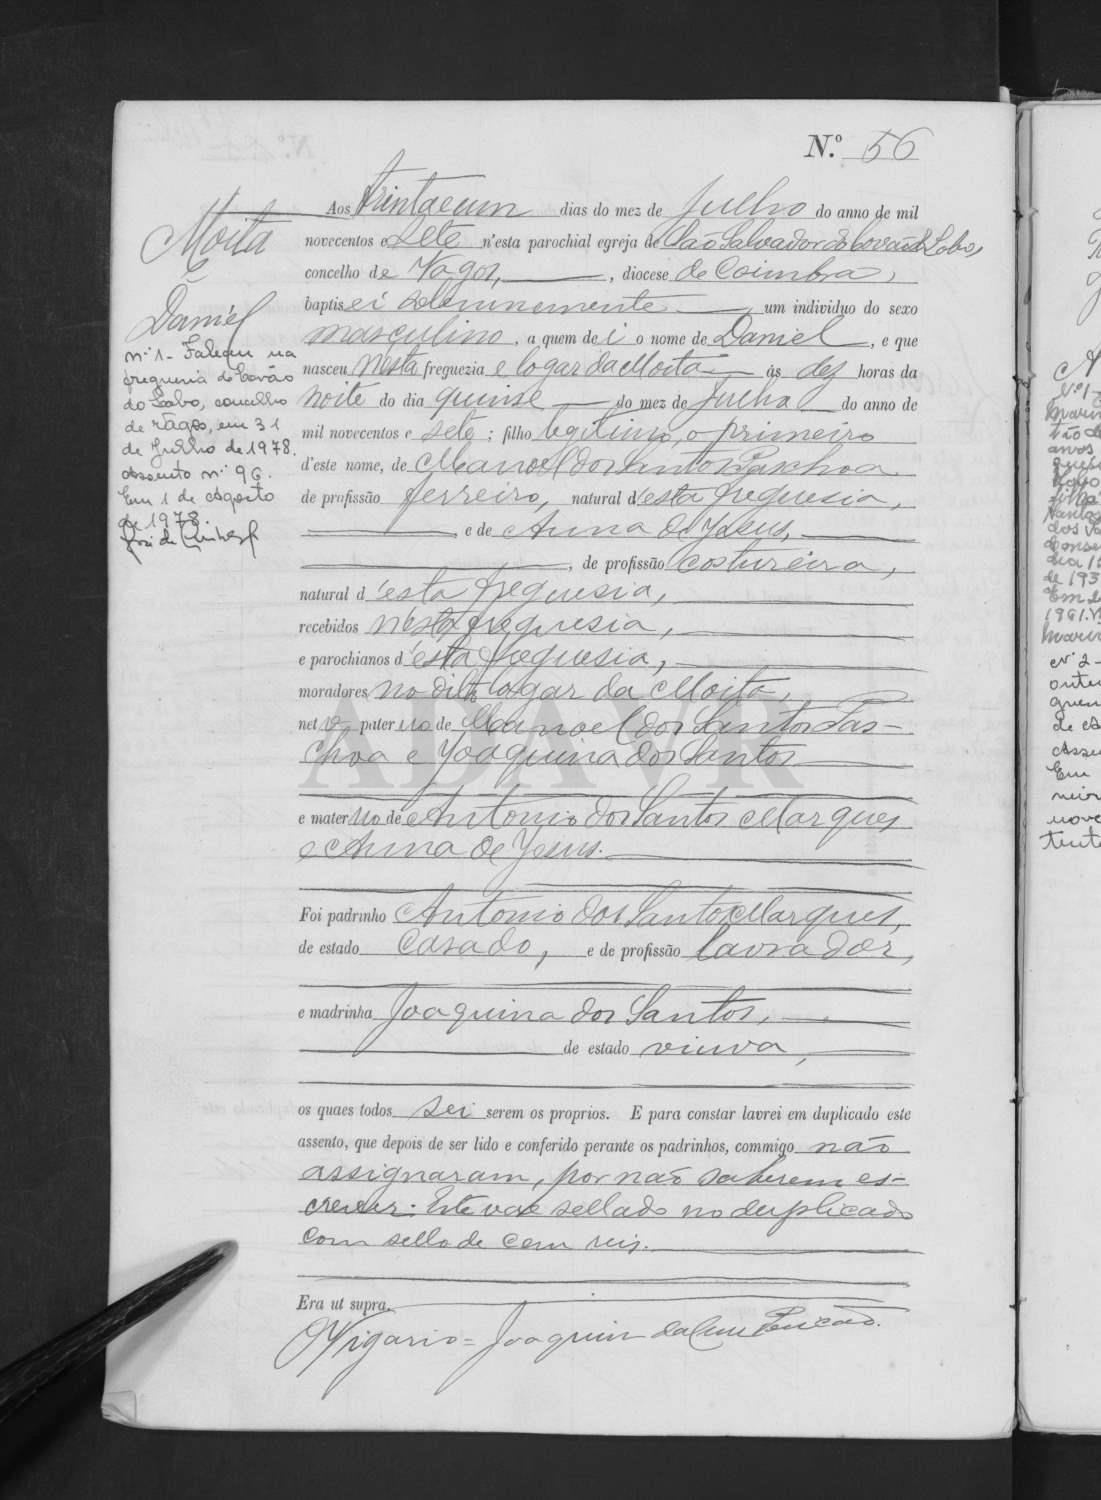 N.º 56
Moita
Daniel
nº 1 - Faleceu na
freguesia de Covão
do Lobo, concelho
de Vagos, em 31
de Julho de 1978.
Assento nº 96.
Em 1 de Agosto
de 1978
Aos trinta e um dias do mez de Julho do anno de mil
novecentos e sete n'esta parochial egreja de São Salvador do Covão do Lobo,
concelho de Vagos, , diocese de Coimbra,
baptisei solemnemente um individuo do sexo
masculino, a quem dei o nome de Daniel, e que
nasceu nesta freguezia e logar da Moita ás dez horas da
noite do dia quinse do mez de Julho do anno de
mil novecentos e sete; filho legitimo, o primeiro
d'este nome, de Manoel dos Santos Paschoa
de profissão ferreiro, natural d'esta freguesia,
, e de Anna de Jesus,
, de profissão costureira,
natural d'esta freguesia,
recebidos n'esta freguesia,
e parochianos d'esta freguesia,
moradores no dito logar da Moita,
neto paterno de Manoel dos Santos Pas-
choa e Joaquina dos Santos
ADAVR
e materno de Antonio dos Santos Marques
e Anna de Jesus.
Foi padrinho Antonio dos Santos Marques,
de estado casado, e de profissão lavrador,
e madrinha Joaquina dos Santos,
de estado viuva,
os quaes todos sei serem os proprios. E para constar lavrei em duplicado este
assento, que depois de ser lido e conferido perante os padrinhos, commigo não
assignaram, por não saberem es-
crever. Este vae sellado no duplicado
com sello de cem reis.
Era ut supra.
O Vigario = Joaquim da Cruz